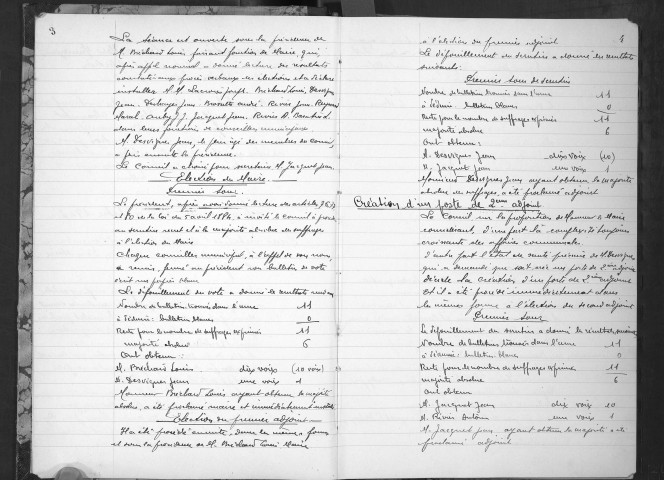 3
La séance est ouverte sous la présidence de
M. Bréchard Louis faisant fonction de Maire, qui
après appel nominal a donné lecture des résultats
constatés aux procès verbaux des élections et a déclaré
installer M. M. Lacroix Joseph. Bréchard Louis, Desvignes
Jean.
dans leurs fonctions de conseillers municipaux
M. Desvignes Jean, le plus âgé des membres du conseil,
a pris ensuite la présidence.
Le Conseil a choisi pour secrétaire M. Jacquet Jean.
Election du Maire.
Premier Tour.
Le président, après avoir donné lecture des articles 76, 77
et 80 de la loi du 5 avril 1884, a invité le conseil à procéder
au scrutin secret et à la majorité absolue des suffrages
à l'élection du Maire
Chaque conseiller municipal, à l'appel de son nom,
a remis, fermé au président son bulletin de vote
écrit sur papier blanc
Le dépouillement du vote a donné les résultats suivants
Nombre de bulletins trouvés dans l'urne 11
à déduire: bulletins blancs 0
Reste pour le nombre de suffrages exprimés 11
majorité absolue 6
Ont obtenu:
M. Bréchard Louis dix voix (10 voix)
M. Desvignes Jean une voix 1
Monsieur Bréchard Louis ayant obtenu la majorité
absolue, a été proclamé maire et immédiatement installé
Election du premier adjoint
Il a été procédé ensuite, dans les mêmes formes
et sous la présidence de M. Bréchard Louis Maire
4
à l'élection du premier adjoint
Le dépouillement du scrutin a donné les résultats
suivants:
Premier tour de scrutin
Nombre de bulletins trouvés dans l'urne 11
à déduire: bulletins blancs 0
Reste pour le nombre de suffrages exprimés 11
majorité absolue 6
Ont obtenu:
M. Desvignes Jean dix voix (10)
M. Jacquet Jean une voix 1
Monsieur Desvignes Jean ayant obtenu la majorité
absolue des suffrages, a été proclamé adjoint
Création d'un poste de 2ème adjoint
Le Conseil sur la proposition de Monsieur le Maire
considérant, d'une part la complexité toujours
croissante des affaires communales.
D'autre part l'état de santé précaire de M. Desvignes
qui a demandé que soit créé un poste de 2ème adjoint
décide la création d'un poste de 2ème adjoint
et il a été procédé immédiatement dans
la même forme à l'élection du second adjoint
Premier Tour
Le dépouillement du scrutin a donné les résultats suivants
Nombre de bulletins trouvés dans l'urne 11
à déduire: bulletins blancs 0
Reste pour le nombre de suffrages exprimés 11
majorité absolue 6
ont obtenu
M. Jacquet Jean dix voix 10
M. Rivier Antoine une voix 1
M. Jacquet Jean ayant obtenu la majorité a été
proclamé adjoint